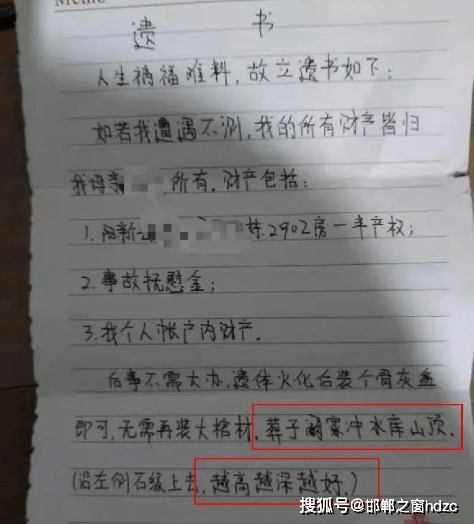 遗 书
人生祸福难料，故立遗书如下：
如若我遭遇不测，我的所有财产皆归
我母亲 所有。财产包括：
1.阳新 栋2902房一半产权；
2.事故抚慰金；
3.我个人帐户内财产。
后事不需大办，遗体火化后装个骨灰盒
即可，无需再装大棺材，葬于 家冲水库山顶。
（沿左侧石级上去，越高越深越好。）
搜狐号@邯郸之窗hdzc